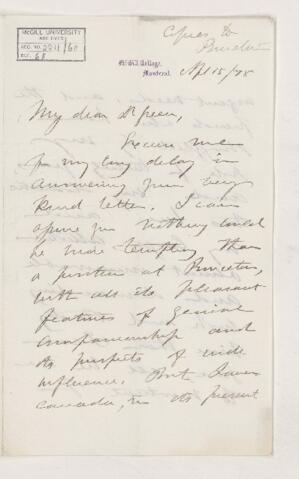 McGILL UNIVERSITY
ARCHIVES
ACC. NO. 2211/60
REF. 68
Copies to
Princeton
McGill College,
Montreal.
Apl 15/78
My dear Dr Green,
Excuse me
for my long delay in
answering your very
kind letter. I can
assure you nothing could
be more tempting than
a position at Princeton,
with all its pleasant
features of genial
companionship and
its prospects of wide
influence. But I owe
Canada, in its present